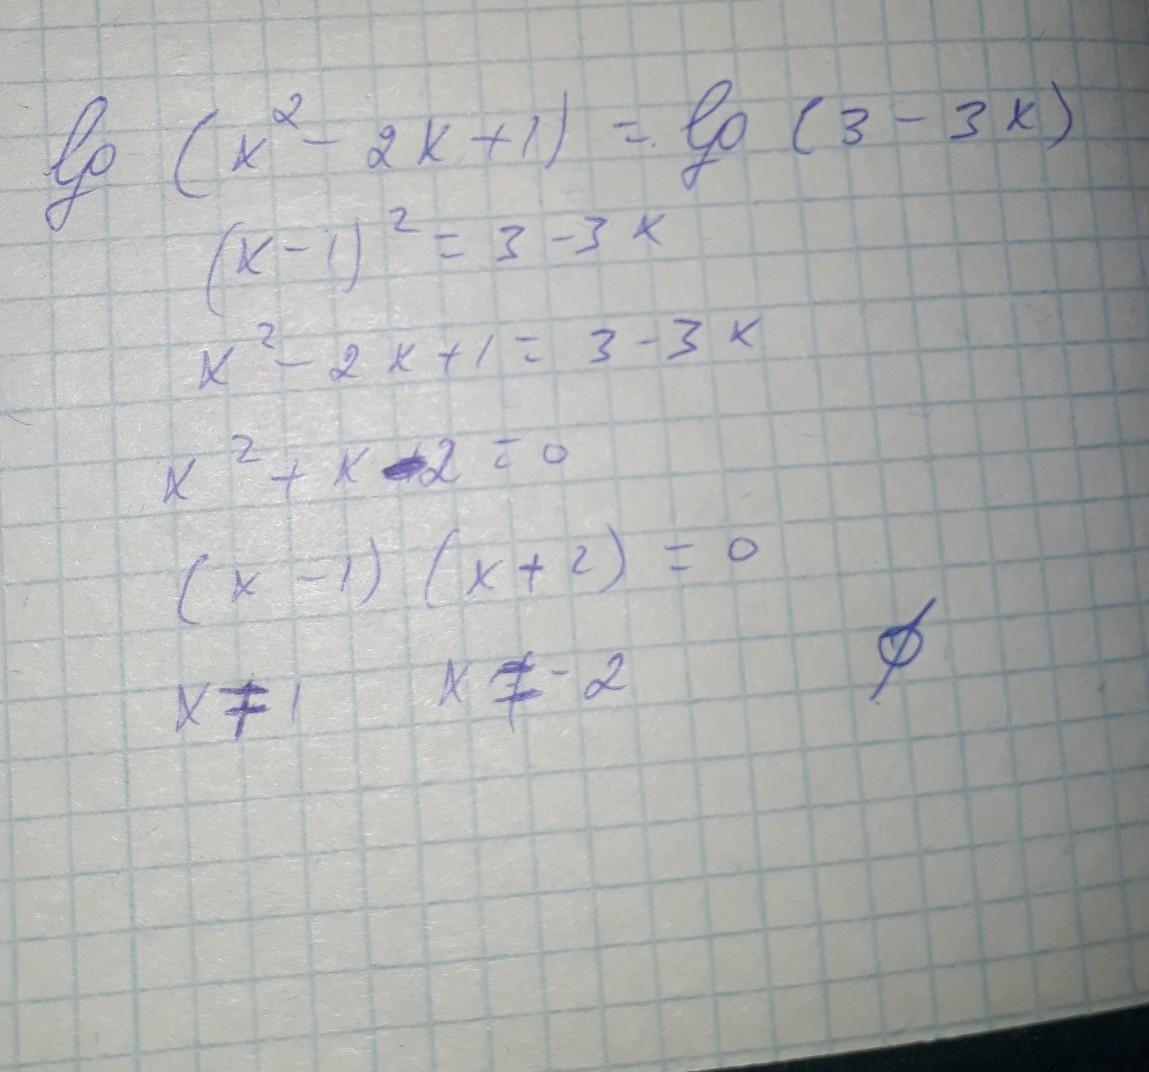 lg (x² - 2x + 1) = lg (3 - 3x)
(x - 1)² = 3 - 3x
x² - 2x + 1 = 3 - 3x
x² + x - 2 = 0
(x - 1) (x + 2) = 0
x ≠ 1 x ≠ - 2 ∅